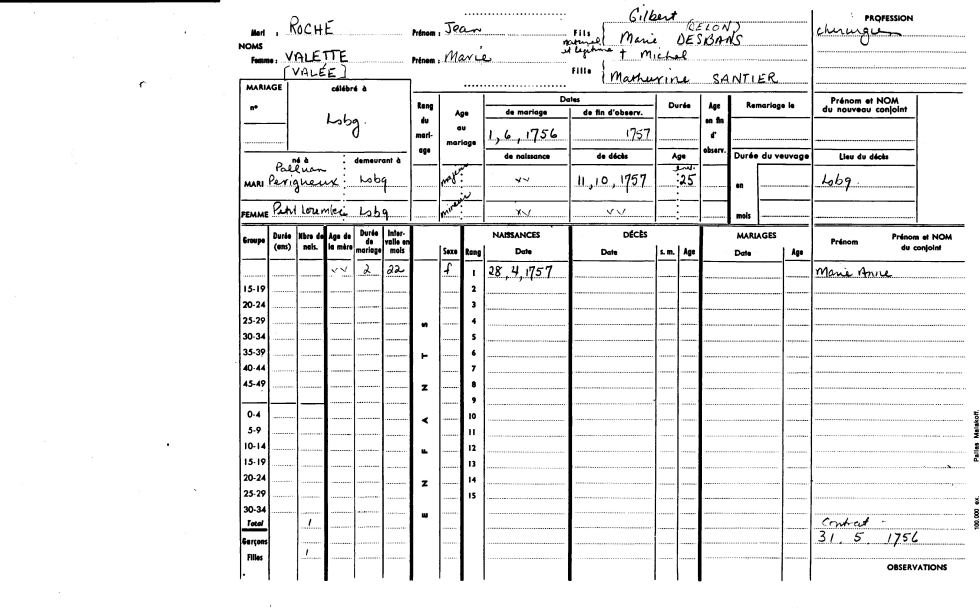 Gilbert
Mari : ROCHE Prénom : Jean Fils naturel et légitime Marie (DELON) DESBANS PROFESSION
chirurgien
NOMS
Femme : VALETTE Prénom : Marie † Michel
[VALÉE] Fille Mathurine SANTIER
MARIAGE célébré à
n° Lsbg.
Rang du mariage Age au mariage Dates Durée Age en fin d'observ. Remariage le Prénom et NOM du nouveau conjoint
de mariage de fin d'observ.
1, 6, 1756 1757
né à demeurant à de naissance de décès Age Durée du veuvage Lieu du décès
Palluau env.
MARI Périgneux Lsbg majeur vv 11, 10, 1757 25 en Lsbg.
FEMME Petit Lsbg mineur vv vv mois
Groupe Durée (ans) Nbre de nais. Age de la mère Durée de mariage Intervalle en mois ENFANTS Sexe Rang NAISSANCES Date DÉCÈS Date s. m. Age MARIAGES Date Age Prénom Prénom et NOM du conjoint
vv 2 22 f 1 28, 4, 1757 Marie Anne
15-19 2
20-24 3
25-29 4
30-34 5
35-39 6
40-44 7
45-49 8
9
0-4 10
5-9 11
10-14 12
15-19 13
20-24 14
25-29 15
30-34
Total 1 Contrat -
Garçons 31. 5. 1756
Filles 1
OBSERVATIONS
100.000 ex. Pairies Malakoff.